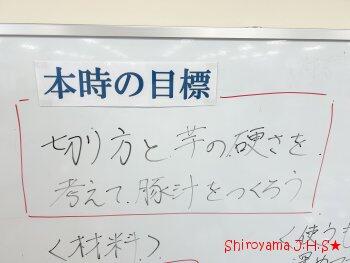 本時の目標
切り方と芋の硬さを
考えて豚汁をつくろう
<材料>
<使うも
Shiroyama J.H.S★